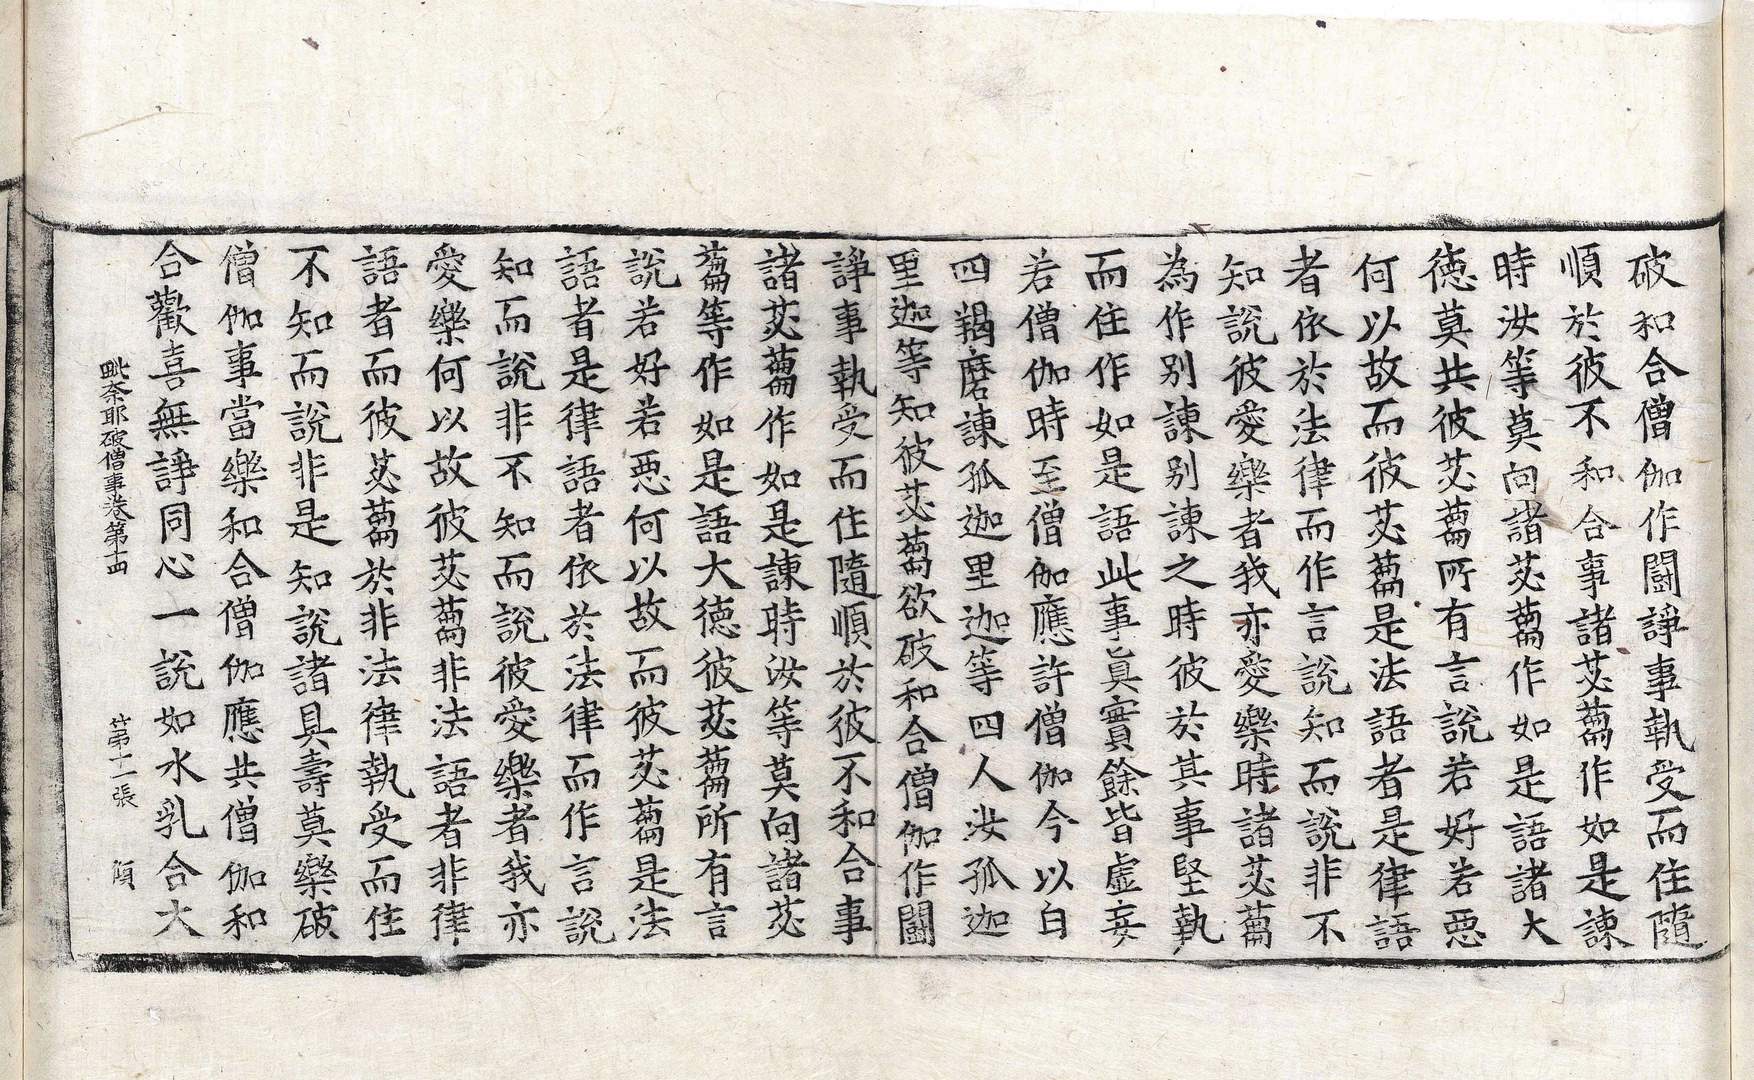 破和合僧伽作鬪諍事執受而住隨
順於彼不和合事諸苾蒭作如是諫
時汝等莫向諸苾蒭作如是語諸大
德莫共彼苾蒭所有言說若好若惡
何以故而彼苾蒭是法語者是律語
者依於法律而作言說知而說非不
知說彼愛樂者我亦愛樂時諸苾蒭
為作別諫別諫之時彼於其事堅執
而住作如是語此事眞實餘皆虛妄
若僧伽時至僧伽應許僧伽今以白
四羯磨諫孤迦里迦等四人汝孤迦
里迦等知彼苾蒭欲破和合僧伽作鬪
諍事執受而住隨順於彼不和合事
諸苾蒭作如是諫時汝等莫向諸苾
蒭等作如是語大德彼苾蒭所有言
說若好若惡何以故而彼苾蒭是法
語者是律語者依於法律而作言說
知而說非不知而說彼愛樂者我亦
愛樂何以故彼苾蒭非法語者非律
語者而彼苾蒭於非法律執受而住
不知而說非是知說諸具壽莫樂破
僧伽事當樂和合僧伽應共僧伽和
合歡喜無諍同心一說如水乳合大
毗奈耶破僧事卷第十四 第十一張